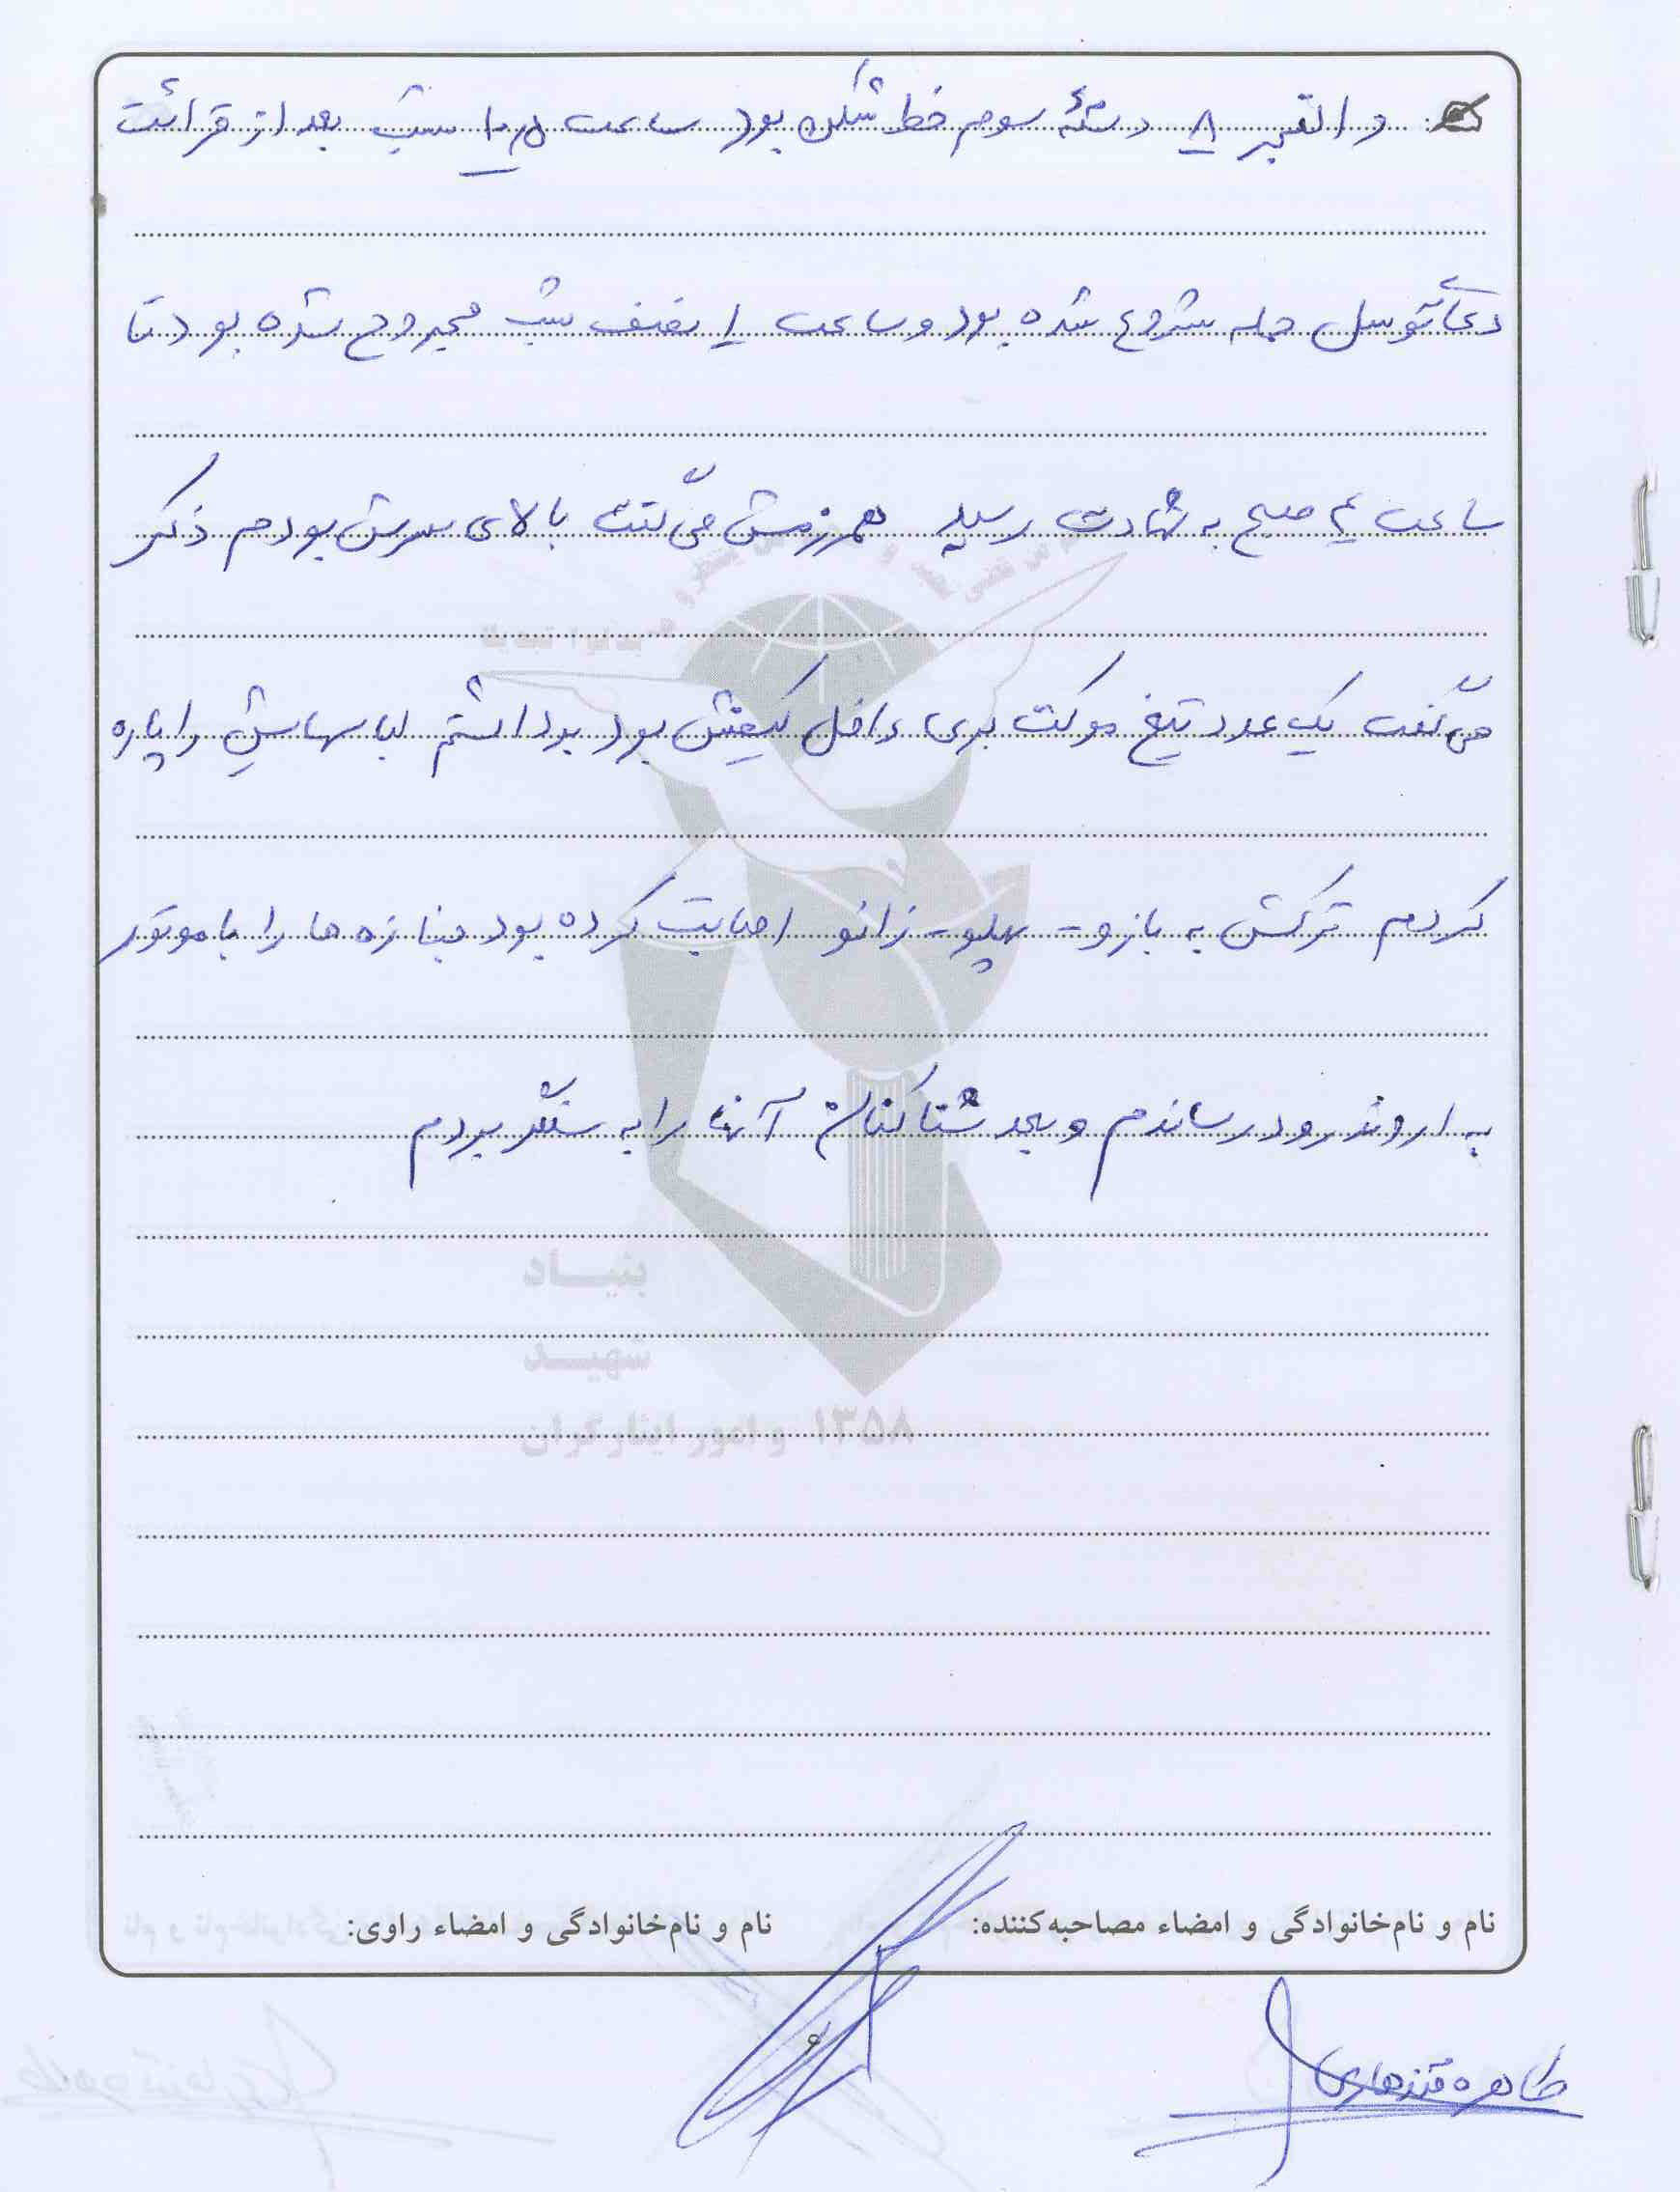 والفجر ۸ دستهٔ سوم خط شکن بود ساعت ۱۰/۵ شب بعد از قرائت
دعای توسل حمله شروع شده بود و ساعت ۱ نصف شب مجروح شده بود تا
ساعت ۴ صبح به شهادت رسید همرزمش می گفت بالای سرش بودم ذکر
می گفت یک عدد تیغ موکت بری داخل کیفش بود برداشتم لباسهایش را پاره
کردم ترکش به بازو - پهلو - زانو اصابت کرده بود جنازه ها را با موتور
به اروند رود رساندم و بعد شنا کنان آنها را به سنگر بردم
بنیاد
شهید
۱۳۵۸ و امور ایثارگران
نام و نام‌خانوادگی و امضاء مصاحبه‌کننده: نام و نام‌خانوادگی و امضاء راوی:
طاهره قندهاری
۶